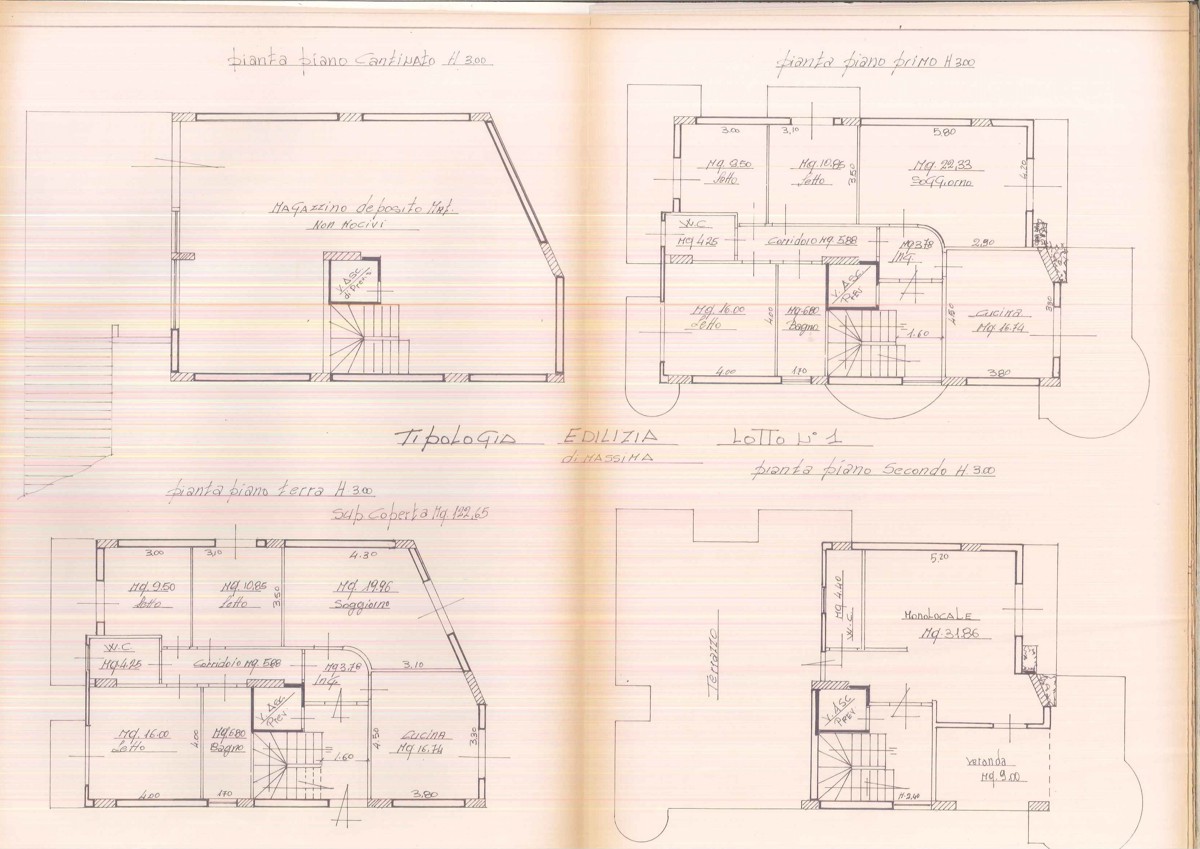 pianta piano Cantinato H 3.00
MAGAZZINO deposito MAT.
NON NOCIVI
V. ASC
di Prev.
pianta piano primo H 3.00
3.00
3,10
5.80
Mq. 9.50
Letto
Mq 10.85
Letto
3.50
Mq. 22,33
SOGGiorno
4.20
W.C
Mq 4.25
Corridoio Mq 5.88
Mq 3.78
InG.
2.90
Mq. 16.00
Letto
4.00
Mq. 6.80
Bagno
V. ASC
PREV
1.60
4.50
CUCINA
Mq 16.74
3.30
4.00
1.70
3.80
TipoLOGIA EDILIZIA LOTTO N° 1
di MASSIMA
pianta piano Secondo H 3.00
pianta piano terra H 3.00
SUP Coperta Mq 122,65
3.00
3,10
4.30
Mq. 9.50
Letto
Mq. 10.85
Letto
3.50
Mq 19.96
Soggiorno
W.C.
Mq 4.25
Corridoio Mq 5.88
Mq 3.78
InG.
3.10
Mq. 16.00
Letto
4.00
Mq 6.80
Bagno
V. ASC
PREV
1.60
4.50
CUCINA
Mq 16.74
3.30
4.00
1.70
3.80
5.20
Mq 4.40
W.C.
MONOLOCALE
Mq. 31.86
Terrazzo
V. ASC
PREV
Veranda
Mq. 9.00
H. 2,40